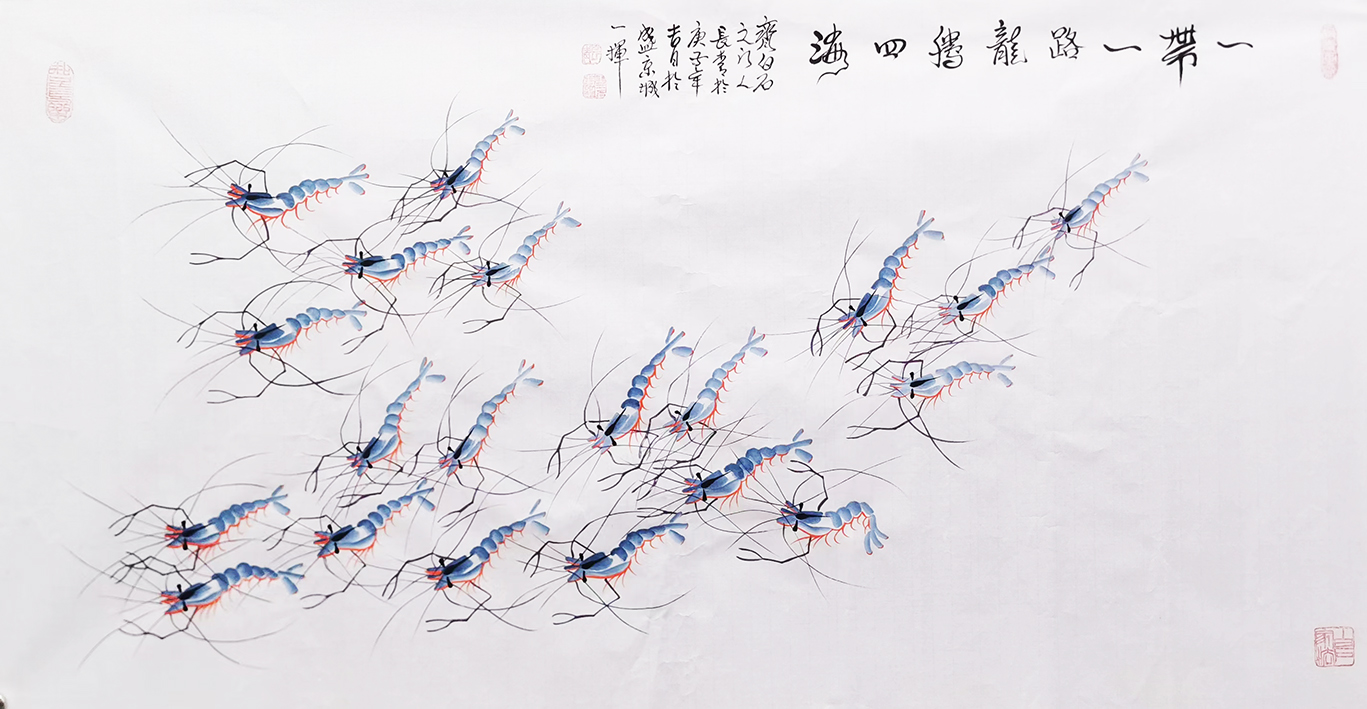 一帶一路龍騰四海
齊白石
文化人
長青於
庚子年
吉月於
盛京城
一揮